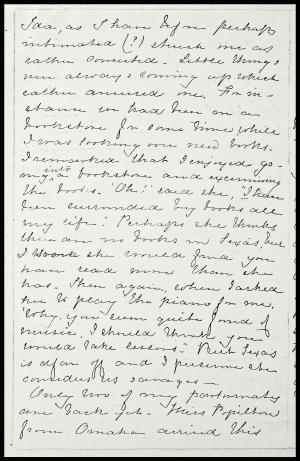 Ida, as I have before perhaps
intimated (?) struck me as
rather conceited. Little things
were always coming up which
rather amused me. For in-
stance we had been in a
bookstore for some time while
I was looking over new books.
I remarked that I enjoyed go-
ing into a bookstore and examining
the books. "Oh!" said she "I have
been surrounded by books all
my life." Perhaps she thinks
there are no books in Texas, but
I she would find you
have read more than she
has. Then again, when I asked
her to play the piano for me.
"Why, you seem quite fond of
music, I should think you
would take lessons." But Texas
is afar off and I presume she
considers us savages —
Only two of my
are back yet. Miss
from Omaha arrived this